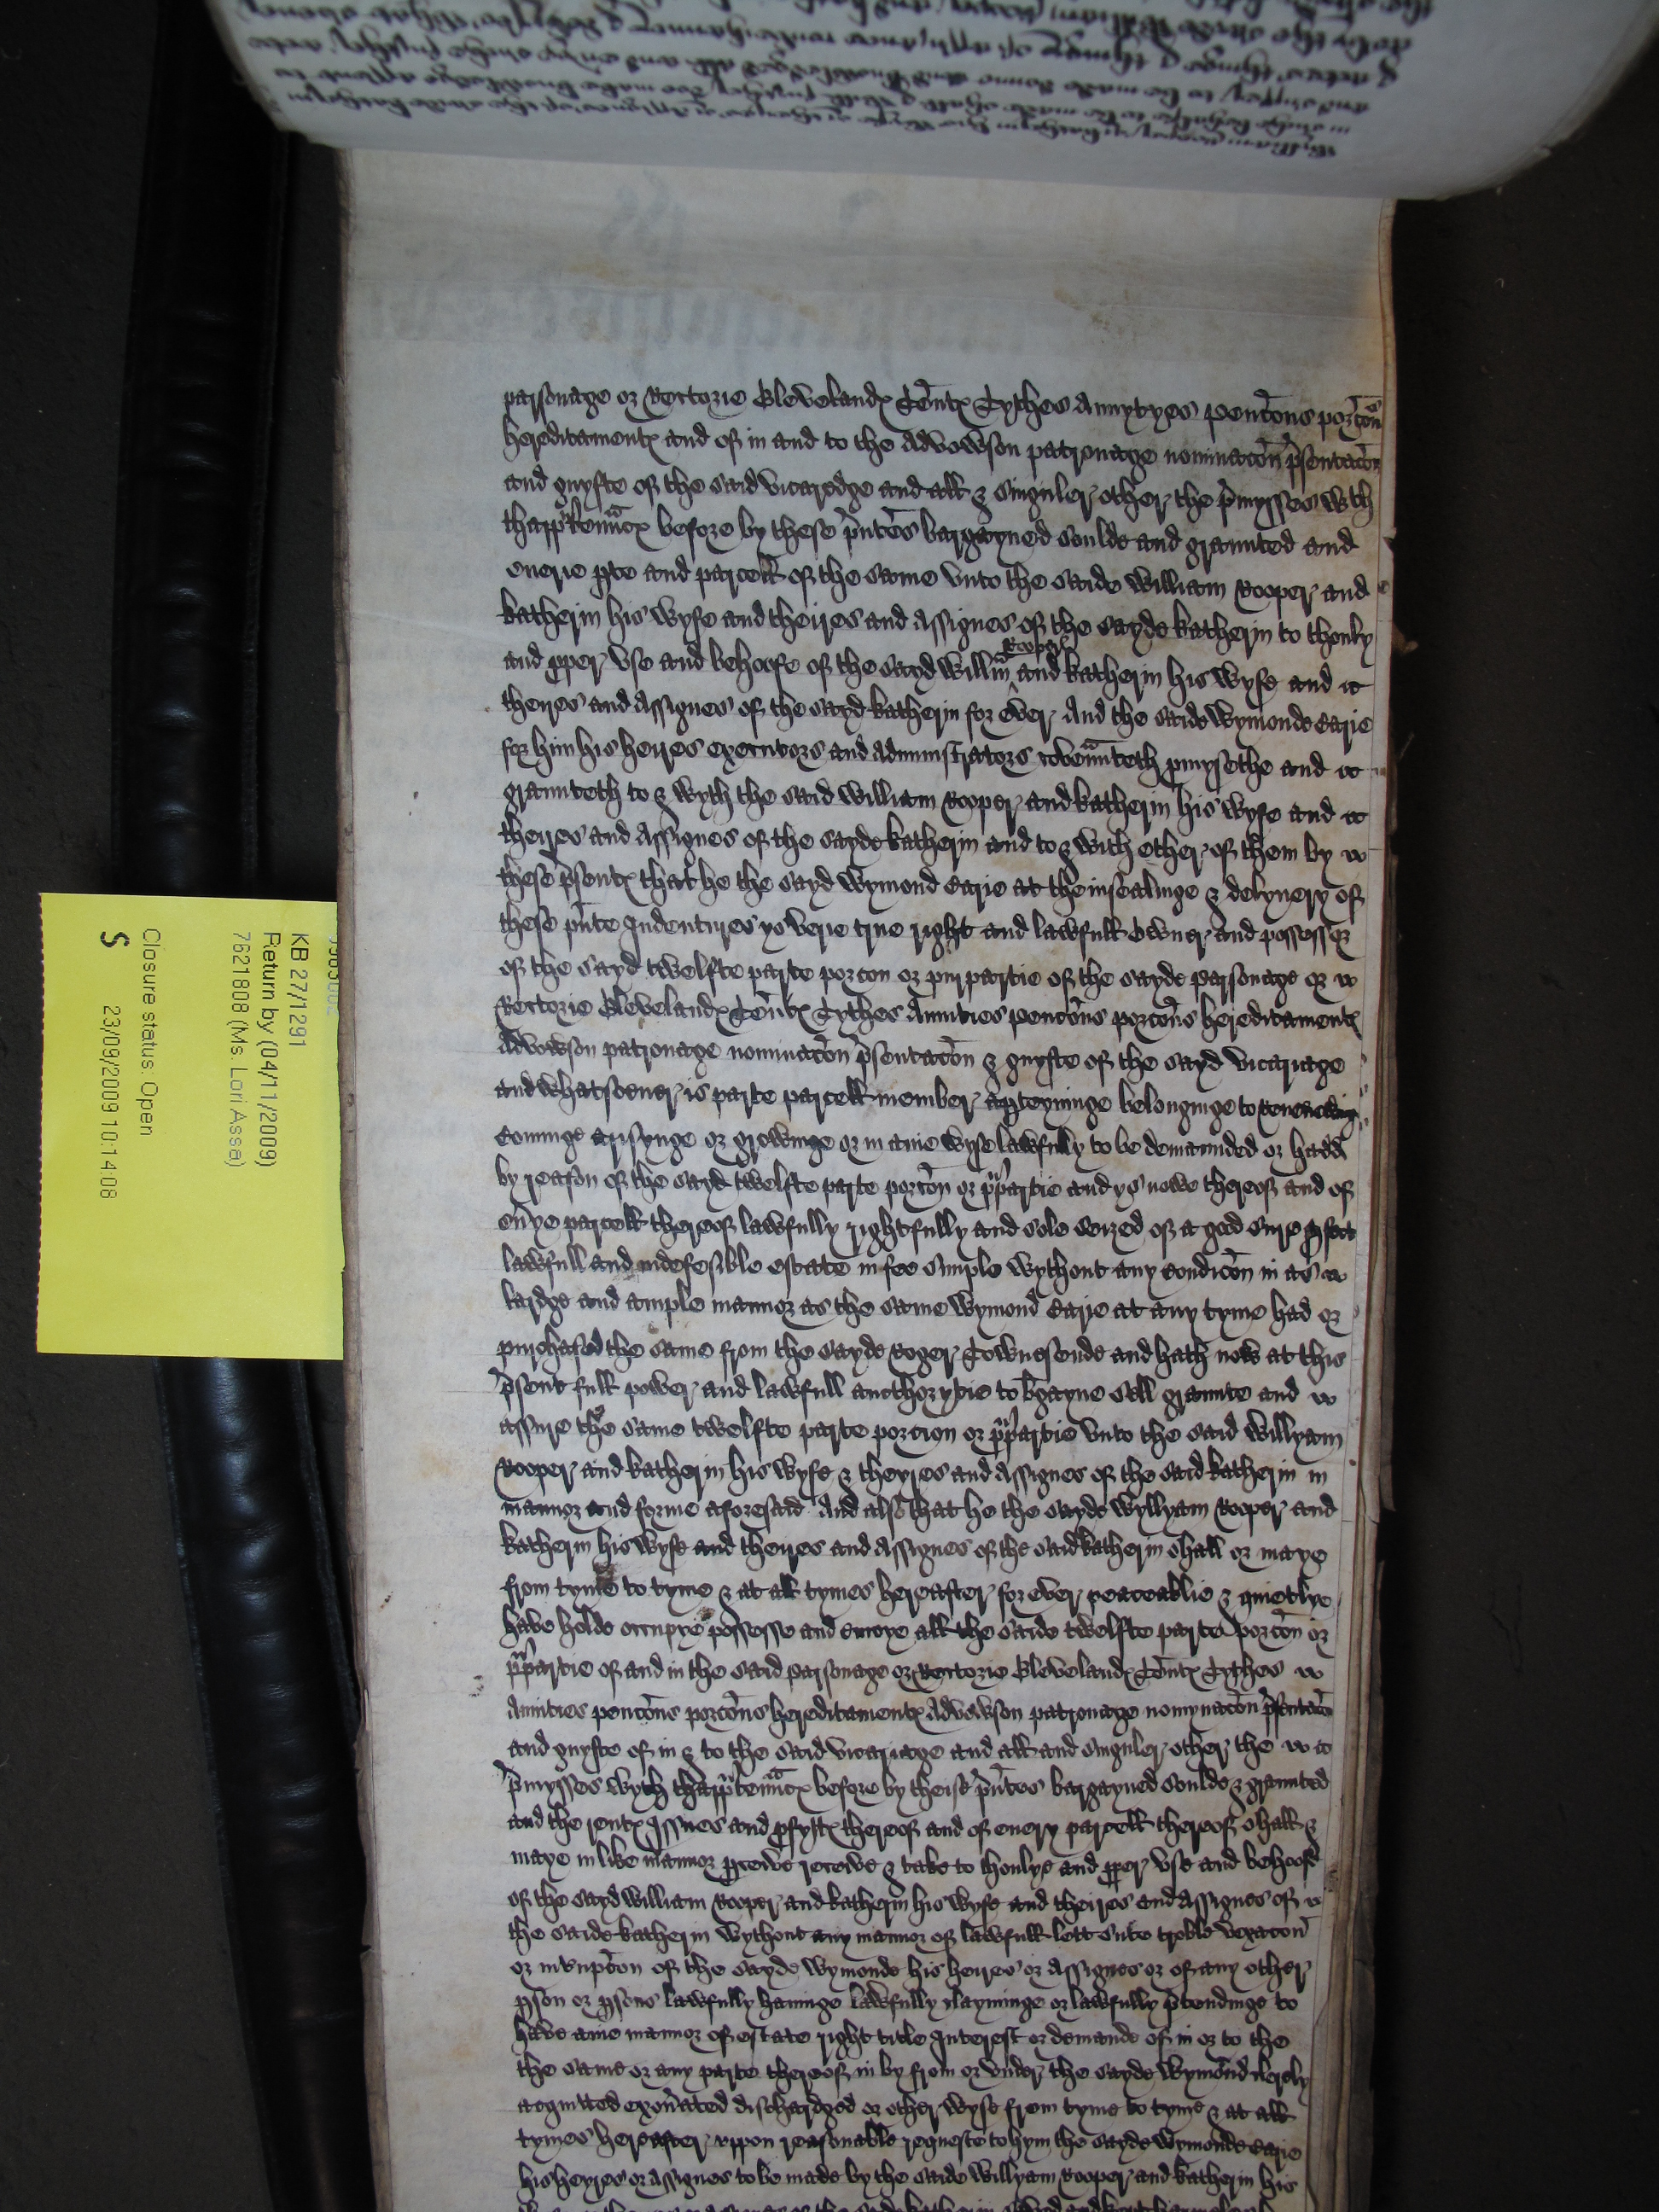 parsonage or Rectorie Glebelandꝭ Tentꝭ Tythes Annytyes pencons porcons
hereditamentꝭ and of in and to the Advowson patronage nominacon p'sentacon
and guyfte of the said vicaredge and all & singuler other the p'mysses wth
thapp'tennncꝭ before by these p'ntes bargayned soulde and graunted and
euerie pte and parcell of the same vnto the saide William Rooper and
katherin his wyfe and theires and Assignes of the sayde katherin to thonly
and pper vse and behoofe of the sayd Willm Rooper and katherin his wyfe and
theires and Assignes of the sayd katherin for ever And the saide Wymonde Carie
for him his heires executors and administrators covennteth pmysethe and
graunteth to & wyth the said William Rooper and katherin his wyfe and
theires and Assignes of the sayde katherin and to & with ether of them by
these p'sentꝭ that he the sayd Wymond Carie at the insealinge & delyuery of
these p'nte Indentures ys verie true right and lawfull owner and possessor
of the sayd twelfte parte porcon or purpartie of the sayde parsonage or
Rectorie Glebelandꝭ Tentꝭ Tythes Annities pencons porcons hereditamentꝭ
Advowson patronage nominacon p'sentacon & guyfte of the sayd vicariage
and whatsoeuer is parte parcell member apteyninge belonginge to renewinge
cominge arisynge or growinge or in anie wyse lawfully to be demaunded or hadd
by reason of the sayd twelfte parte porcon or p'partie and ys nowe thereof and of
eu'ye parcell thereof lawfully rightfully and sole seized of a good sure pfect
lawfull and indefesible estate in fee simple wythout any condicon in as
lardge and ample mannor as the same Wymond Carie at any tyme had or
purchased the same from the sayde Roger Townesende and hath now at this
p'sent full power and lawfull authorytie to b'gayne sell graunte and
assure the same twelfte parte porcion or p'partie vnto the said Willyam
Rooper and katherin his wyfe & theyres and Assignes of the said katherin in
mannor and forme aforesaid And also that he the sayde Wyllyam Rooper and
katherin his wyfe and theires and Assignes of the said katherin shall or maye
from tyme to tyme & at all tymes hereafter for ever peaceablie & quietlye
have holde occupye possesse and enioye all the saide twelfte parte porcon or
p'partie of and in the said parsonage or Rectorie Glebelandꝭ Tentꝭ Tythes
Annities pencons porcons hereditamentꝭ Advowson patronage nomynacon p'sentacon
and guyfte of in & to the said vicariage and all and singuler other the
p'mysses wyth thapp'tennncꝭ before by theise p'ntes bargayned soulde & graunted
and the rentꝭ Issues and pfyttꝭ thereof and of euery parcell thereof shall &
maye in like mannor pceive receive & take to thonlye and pper vse and behoofe
of the sayd William Rooper and katherin his wyfe and theires and Assignes of
the saide katherin wythout any mannor of lawfull lett sute troble vexacon
or int'rupcon of the sayde Wymonde his heires or Assignes or of any other
pson or psons lawfully hauinge lawfully clayminge or lawfully p'tendinge to
have anie mannor of estate right title Interest or demande of in or to the
the same or any parte thereof in by from or vnder the sayde Wymond clerely
acquited exon'ated dischardged or other wyse from tyme to tyme & at all
tymes hereafter vppon reasonable requeste to hym the sayde Wymonde Carie
his heyres or Assignes to be made by the saide Willyam Rooper and katherin his
KB 27/1291
Return by (04/11/2009)
7621808 (Ms. Lori Assa)
Closure status: Open
S 23/09/2009 10:14:08